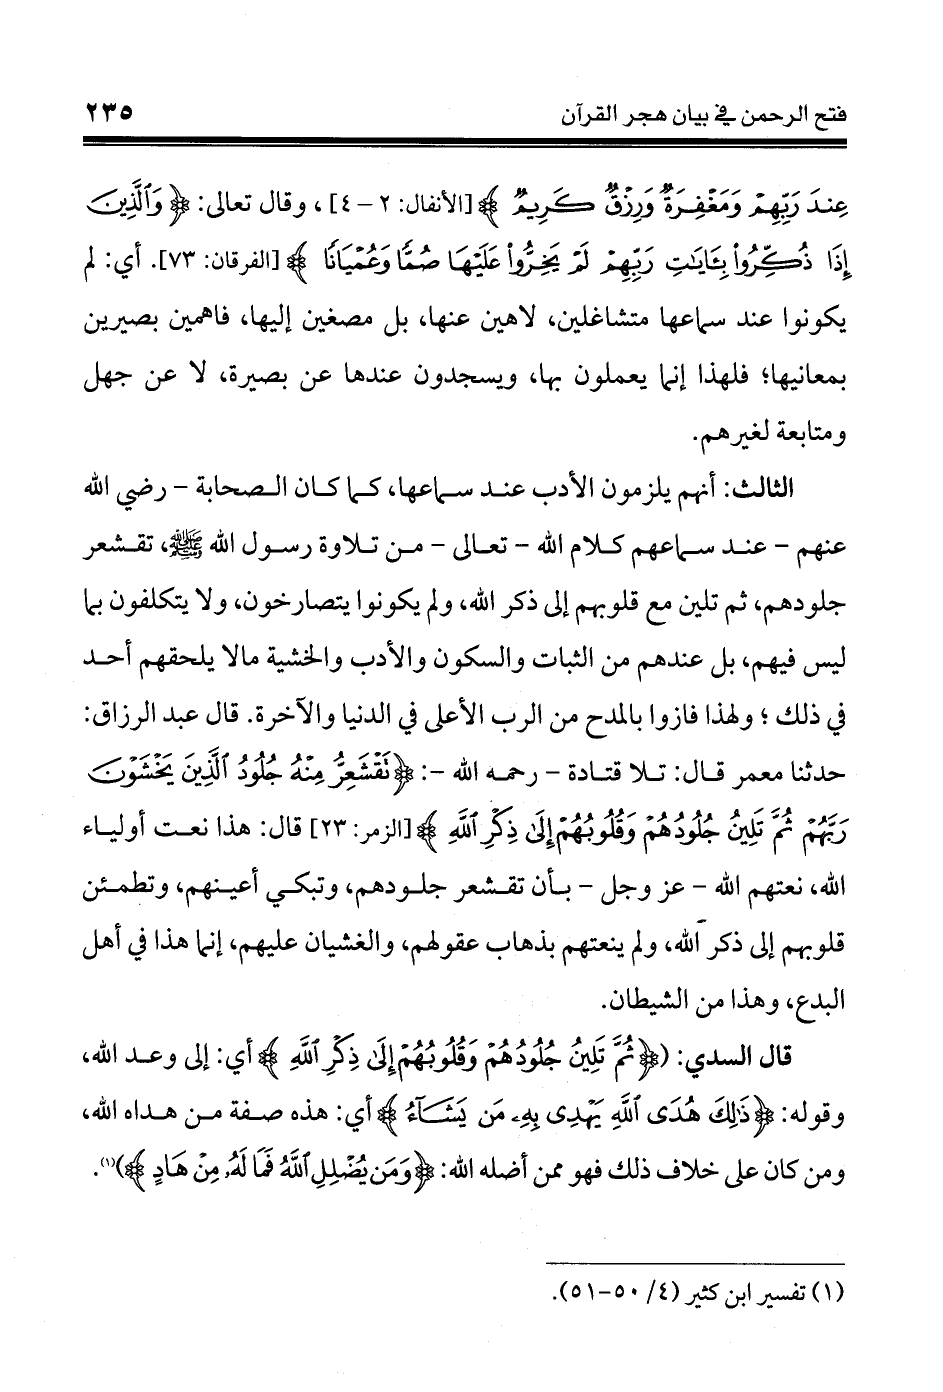 فتح الرحمن في بيان هجر القرآن ٢٣٥
عِندَ رَبِّهِمْ وَمَغْفِرَةٌ وَرِزْقٌ كَرِيمٌ ﴾ [الأنفال: ٢ – ٤] ، وقال تعالى: ﴿ وَٱلَّذِينَ
إِذَا ذُكِّرُوا۟ بِـَٔايَـٰتِ رَبِّهِمْ لَمْ يَخِرُّوا۟ عَلَيْهَا صُمًّا وَعُمْيَانًا ﴾ [الفرقان: ٧٣]. أي: لم
يكونوا عند سماعها متشاغلين، لاهين عنها، بل مصغين إليها، فاهمين بصيرين
بمعانيها؛ فلهذا إنما يعملون بها، ويسجدون عندها عن بصيرة، لا عن جهل
ومتابعة لغيرهم.
الثالث: أنهم يلزمون الأدب عند سماعها، كما كان الصحابة – رضي الله
عنهم – عند سماعهم كلام الله – تعالى – من تلاوة رسول الله ﷺ، تقشعر
جلودهم، ثم تلين مع قلوبهم إلى ذكر الله، ولم يكونوا يتصارخون، ولا يتكلفون بما
ليس فيهم، بل عندهم من الثبات والسكون والأدب والخشية مالا يلحقهم أحد
في ذلك ؛ ولهذا فازوا بالمدح من الرب الأعلى في الدنيا والآخرة. قال عبد الرزاق:
حدثنا معمر قال: تلا قتادة – رحمه الله –: ﴿ تَقْشَعِرُّ مِنْهُ جُلُودُ ٱلَّذِينَ يَخْشَوْنَ
رَبَّهُمْ ثُمَّ تَلِينُ جُلُودُهُمْ وَقُلُوبُهُمْ إِلَىٰ ذِكْرِ ٱللَّهِ ﴾ [الزمر: ٢٣] قال: هذا نعت أولياء
الله، نعتهم الله – عز وجل – بأن تقشعر جلودهم، وتبكي أعينهم، وتطمئن
قلوبهم إلى ذكر الله، ولم ينعتهم بذهاب عقولهم، والغشيان عليهم، إنما هذا في أهل
البدع، وهذا من الشيطان.
قال السدي: (﴿ ثُمَّ تَلِينُ جُلُودُهُمْ وَقُلُوبُهُمْ إِلَىٰ ذِكْرِ ٱللَّهِ ﴾ أي: إلى وعد الله،
وقوله: ﴿ ذَٰلِكَ هُدَى ٱللَّهِ يَهْدِى بِهِۦ مَن يَشَآءُ ﴾ أي: هذه صفة من هداه الله،
ومن كان على خلاف ذلك فهو ممن أضله الله: ﴿ وَمَن يُضْلِلِ ٱللَّهُ فَمَا لَهُۥ مِنْ هَادٍ ﴾)(١).
(١) تفسير ابن كثير (٤/ ٥٠-٥١).